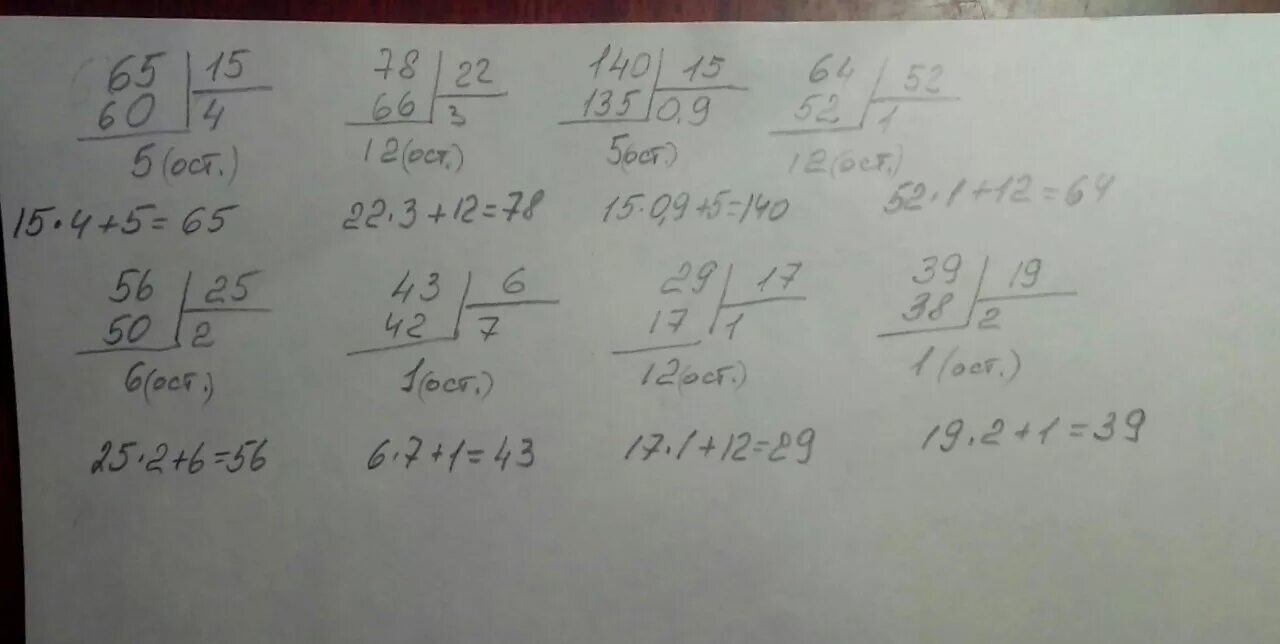 65 15 78 22 140 15 64 52
60 4 66 3 135 0,9 52 1
5 (ост.) 12 (ост.) 5(ост.) 12 (ост.)
15·4+5=65 22·3+12=78 15·0,9+5=140 52·1+12=64
56 25 43 6 29 17 39 19
50 2 42 7 17 1 38 2
6(ост.) 1(ост.) 12(ост.) 1 (ост.)
25·2+6=56 6·7+1=43 17·1+12=29 19·2+1=39